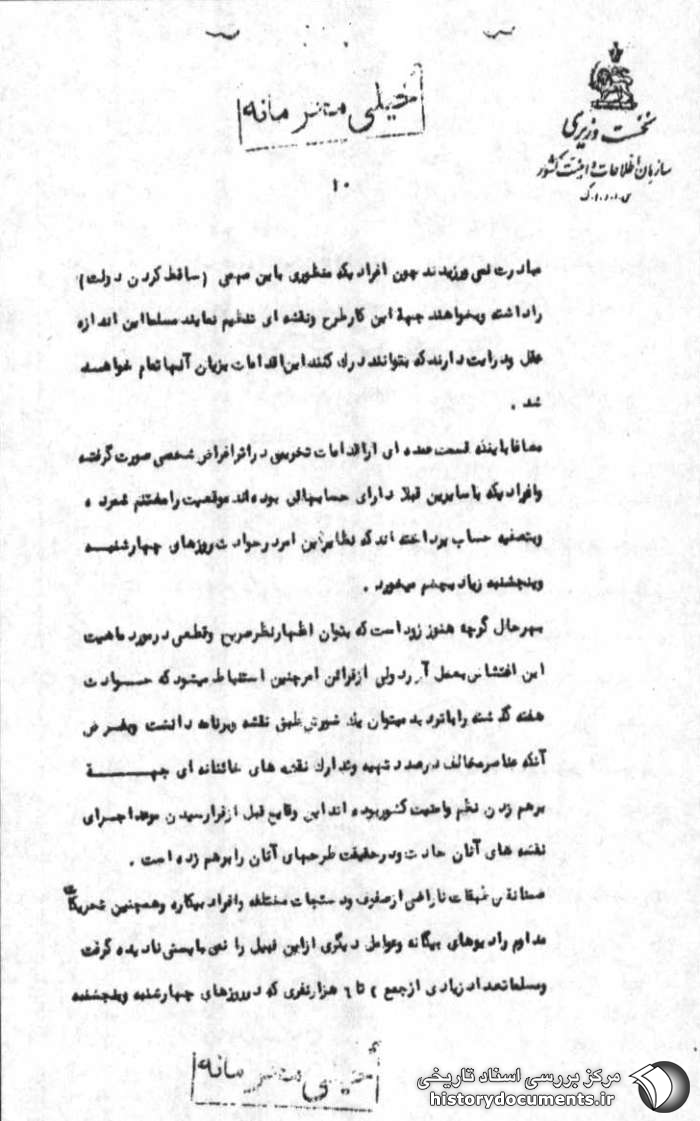 خیلی محرمانه
نخست وزیری
سازمان اطلاعات و امنیت کشور
۱۰
مبادرت نمی ورزیدند چون افرادیکه منظوری باین مهمی (ساقط کردن دولت)
را داشته وبخواهند جهة این کار طرح ونقشه ای تنظیم نمایند مسلما این اندازه
عقل ودرایت دارند که بتوانند درک کنند این اقدامات بزیان آنها تمام خواهد
شد .
مضافا باینکه قسمت عمده ای از اقدامات تخریبی در اثر اغراض شخصی صورت گرفته
وافرادیکه با سایرین قبلا دارای حسابهائی بوده اند موقعیت را مغتنم شمرده
وبتصفیه حساب پرداخته اند که نظایر این امر در حوادث روزهای چهارشنبه
وپنجشنبه زیاد بچشم میخورد .
بهرحال گرچه هنوز زود است که بتوان اظهار نظر صریح وقطعی در مورد ماهیت
این اغتشاش بعمل آورد ولی از قرائن امر چنین استنباط میشود که حوادث
هفته گذشته را باتردید میتوان یک شورش طبق نقشه وبرنامه دانست وبفرض
آنکه عناصر مخالف درصدد تهیه وتدارک نقشه های خائنانه ای جهة
برهم زدن نظم وامنیت کشور بوده اند این وقایع قبل از فرا رسیدن موعد اجرای
نقشه های آنان حادث ودر حقیقت طرحهای آنان را برهم زده است .
طبقات ناراضی از صفوف ودستجات مختلفه وافراد بیکاره وهمچنین تحریکات
مداوم رادیوهای بیگانه وعوامل دیگری از این قبیل را نمی بایستی نادیده گرفت
ومسلما تعداد زیادی از جمع تا ۶ هزار نفری که در روزهای چهارشنبه وپنجشنبه
خیلی محرمانه
مرکز بررسی اسناد تاریخی
historydocuments.ir